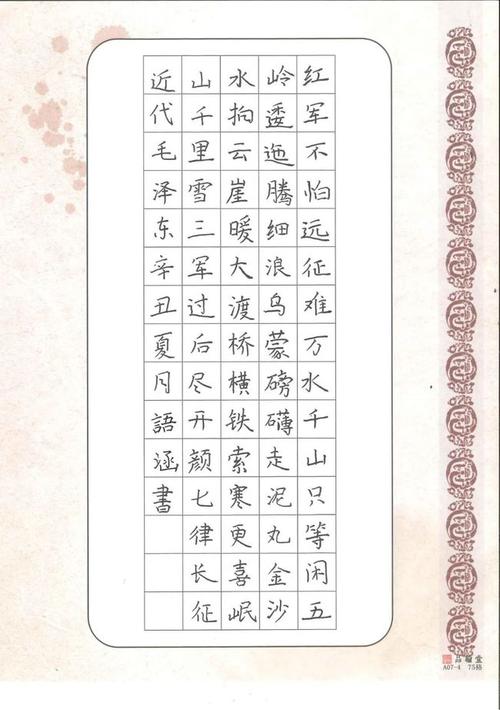 红军不怕远征难万水千山只等闲五
岭逶迤腾细浪乌蒙磅礴走泥丸金沙
水拍云崖暖大渡桥横铁索寒更喜岷
山千里雪三军过后尽开颜七律长征
近代毛泽东辛丑夏月語涵書
A07-4 75格